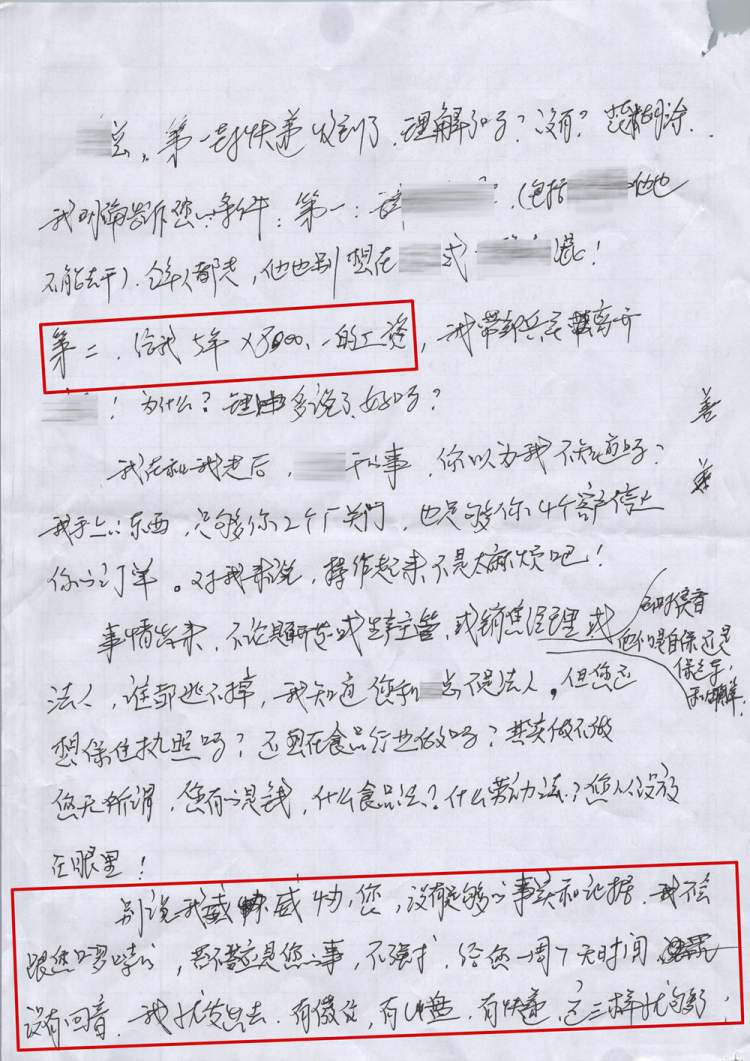 总，第一封快递收到了，理解了吗？没有？
我明确告诉您的条件：第一：请 （包括 他也
不能去干）. 全部人都走，他也别想在 或 混！
第二. 给我5年×8000. 的工资，我带 离开
！为什么？理由多说了好吗？
我在和我走后， 干的事，你以为我不知道吗？
我手上的东西，只够你2个厂关门，也只够你4个客户停止
你的订单。对我来说，操作起来不是太麻烦吧！
事情出来，不论是研发或生产主管，或销售经理或
法人，谁都逃不掉，我知道您和 总不是法人。但您还
想保住执照吗？还要在食品行业做吗？其实做不做
您无所谓，您有的是钱，什么食品法？什么劳动法？您从没放
在眼里！
别说我威胁您，没有足够的事实和证据. 我不会
跟您啰嗦的，答不答应是您的事，不强求. 给您一周7天时间
没有回音. 我就发出去. 有微信，有U盘，有快递，这三样就够了；
他们是自保还是